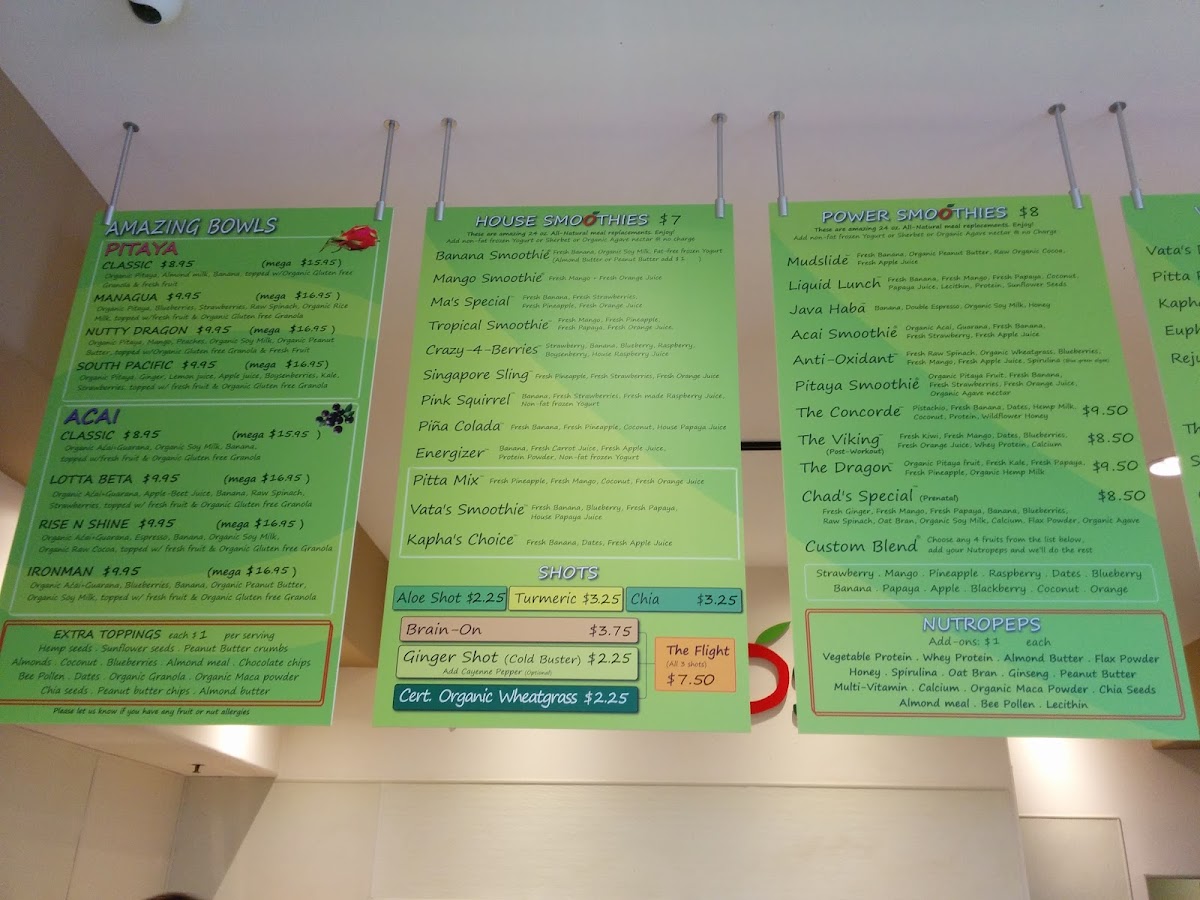 AMAZING BOWLS
PITAYA
CLASSIC $8.95 (mega $15.95)
Organic Pitaya, Almond milk, Banana, topped w/Organic Gluten free
Granola & fresh fruit
MANAGUA $9.95 (mega $16.95)
Organic Pitaya, Blueberries, Strawberries, Raw Spinach, Organic Rice
Milk, topped w/fresh fruit & Organic Gluten free Granola
NUTTY DRAGON $9.95 (mega $16.95)
Organic Pitaya, Mango, Peaches, Organic Soy Milk, Organic Peanut
Butter, topped w/Organic Gluten free Granola & Fresh Fruit
SOUTH PACIFIC $9.95 (mega $16.95)
Organic Pitaya, Ginger, Lemon juice, Apple juice, Boysenberries, Kale,
Strawberries, topped w/ fresh fruit & Organic Gluten free Granola
ACAI
CLASSIC $8.95 (mega $15.95)
Organic Acai+Guarana, Organic Soy Milk, Banana,
topped w/fresh fruit & Organic Gluten free Granola
LOTTA BETA $9.95 (mega $16.95)
Organic Acai+Guarana, Apple-Beet Juice, Banana, Raw Spinach,
Strawberries, topped w/ fresh fruit & Organic Gluten free Granola
RISE N SHINE $9.95 (mega $16.95)
Organic Acai+Guarana, Espresso, Banana, Organic Soy Milk,
Organic Raw Cocoa, topped w/ fresh fruit & Organic Gluten free Granola
IRONMAN $9.95 (mega $16.95)
Organic Acai+Guarana, Blueberries, Banana, Organic Peanut Butter,
Organic Soy Milk, topped w/ fresh fruit & Organic Gluten free Granola
EXTRA TOPPINGS each $1 per serving
Hemp seeds . Sunflower seeds . Peanut Butter crumbs
Almonds . Coconut . Blueberries . Almond meal . Chocolate chips
Bee Pollen . Dates . Organic Granola . Organic Maca powder
Chia seeds . Peanut butter chips . Almond butter
Please let us know if you have any fruit or nut allergies
HOUSE SMOOTHIES $7
These are amazing 24 oz. All-Natural meal replacements. Enjoy!
Add non-fat frozen Yogurt or Sherbet or Organic Agave nectar @ no charge
Banana Smoothie™ Fresh Banana, Organic Soy Milk, Fat-free frozen Yogurt
(Almond Butter or Peanut Butter add $1)
Mango Smoothie™ Fresh Mango + Fresh Orange Juice
Ma's Special™ Fresh Banana, Fresh Strawberries,
Fresh Pineapple, Fresh Orange Juice
Tropical Smoothie™ Fresh Mango, Fresh Pineapple,
Fresh Papaya, Fresh Orange Juice,
Crazy-4-Berries™ Strawberry, Banana, Blueberry, Raspberry,
Boysenberry, House Raspberry Juice
Singapore Sling™ Fresh Pineapple, Fresh Strawberries, Fresh Orange Juice
Pink Squirrel™ Banana, Fresh Strawberries, Fresh made Raspberry Juice,
Non-fat frozen Yogurt
Piña Colada™ Fresh Banana, Fresh Pineapple, Coconut, House Papaya Juice
Energizer™ Banana, Fresh Carrot Juice, Fresh Apple Juice,
Protein Powder, Non-fat frozen Yogurt
Pitta Mix™ Fresh Pineapple, Fresh Mango, Coconut, Fresh Orange Juice
Vata's Smoothie™ Fresh Banana, Blueberry, Fresh Papaya,
House Papaya Juice
Kapha's Choice™ Fresh Banana, Dates, Fresh Apple Juice
SHOTS
Aloe Shot $2.25 Turmeric $3.25 Chia $3.25
Brain-On $3.75
Ginger Shot (Cold Buster) $2.25
Add Cayenne Pepper (Optional)
Cert. Organic Wheatgrass $2.25
The Flight
(All 3 shots)
$7.50
POWER SMOOTHIES $8
These are amazing 24 oz. All-Natural meal replacements. Enjoy!
Add non-fat frozen Yogurt or Sherbet or Organic Agave nectar @ no charge
Mudslide™ Fresh Banana, Organic Peanut Butter, Raw Organic Cocoa,
Fresh Apple Juice
Liquid Lunch™ Fresh Banana, Fresh Mango, Fresh Papaya, Coconut,
Papaya Juice, Lecithin, Protein, Sunflower Seeds
Java Haba™ Banana, Double Espresso, Organic Soy Milk, Honey
Acai Smoothie™ Organic Acai, Guarana, Fresh Banana,
Fresh Strawberry, Fresh Apple Juice
Anti-Oxidant™ Fresh Raw Spinach, Organic Wheatgrass, Blueberries,
Fresh Mango, Fresh Apple Juice, Spirulina (Blue green algae)
Pitaya Smoothie™ Organic Pitaya Fruit, Fresh Banana,
Fresh Strawberries, Fresh Orange Juice,
Organic Agave nectar
The Concorde™ Pistachio, Fresh Banana, Dates, Hemp Milk,
Coconut, Protein, Wildflower Honey $9.50
The Viking™ Fresh Kiwi, Fresh Mango, Dates, Blueberries,
(Post-Workout) Fresh Orange Juice, Whey Protein, Calcium $8.50
The Dragon™ Organic Pitaya fruit, Fresh Kale, Fresh Papaya,
Fresh Pineapple, Organic Hemp Milk $9.50
Chad's Special™ (Prenatal) $8.50
Fresh Ginger, Fresh Mango, Fresh Papaya, Banana, Blueberries,
Raw Spinach, Oat Bran, Organic Soy Milk, Calcium, Flax Powder, Organic Agave
Custom Blend® Choose any 4 fruits from the list below,
add your Nutropeps and we'll do the rest
Strawberry . Mango . Pineapple . Raspberry . Dates . Blueberry
Banana . Papaya . Apple . Blackberry . Coconut . Orange
NUTROPEPS
Add-ons: $1 each
Vegetable Protein . Whey Protein . Almond Butter . Flax Powder
Honey . Spirulina . Oat Bran . Ginseng . Peanut Butter
Multi-Vitamin . Calcium . Organic Maca Powder . Chia Seeds
Almond meal . Bee Pollen . Lecithin
Vata's
Pitta
Kapha
Euph
Reju
Th